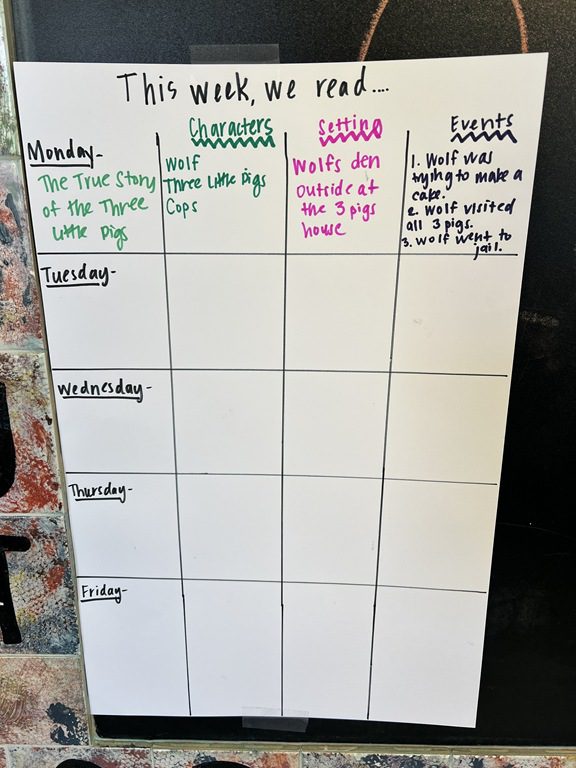 This week, we read....
Characters
Setting
Events
Monday-
The True Story
of the Three
Little Pigs
Wolf
Three Little Pigs
Cops
Wolfs den
Outside at
the 3 pigs
house
1. Wolf was
trying to make a
cake.
2. Wolf visited
all 3 pigs.
3. Wolf went to
jail.
Tuesday-
Wednesday-
Thursday-
Friday-